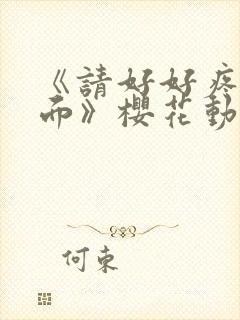 《請好好疼
而》櫻花動
何束